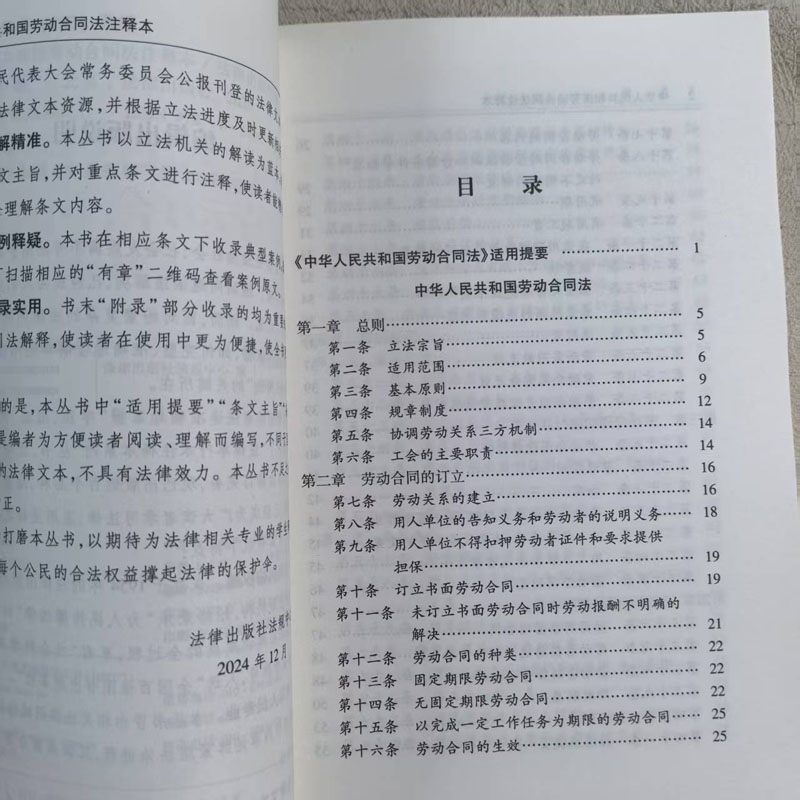 共和国劳动合同法注释本
民代表大会常务委员会公报刊登的法律文
法律文本资源，并根据立法进度及时更新
解精准。本丛书以立法机关的解读为蓝本
文主旨，并对重点条文进行注释，使读者能
理解条文内容。
例释疑。本书在相应条文下收录典型案例
扫描相应的“有章”二维码查看案例原文。
录实用。书末“附录”部分收录的均为重要
司法解释，使读者在使用中更为便捷，使全书
的是，本丛书中“适用提要”“条文主旨”
是编者为方便读者阅读、理解而编写，不同于
的法律文本，不具有法律效力。本丛书不足
正。
打磨本丛书，以期待为法律相关专业的学生
每个公民的合法权益撑起法律的保护伞。
法律出版社法规中
2024年12月
目 录
《中华人民共和国劳动合同法》适用提要 …… 1
中华人民共和国劳动合同法
第一章 总则 …… 5
第一条 立法宗旨 …… 5
第二条 适用范围 …… 6
第三条 基本原则 …… 9
第四条 规章制度 …… 12
第五条 协调劳动关系三方机制 …… 14
第六条 工会的主要职责 …… 14
第二章 劳动合同的订立 …… 16
第七条 劳动关系的建立 …… 16
第八条 用人单位的告知义务和劳动者的说明义务 …… 18
第九条 用人单位不得扣押劳动者证件和要求提供
担保 …… 19
第十条 订立书面劳动合同 …… 19
第十一条 未订立书面劳动合同时劳动报酬不明确的
解决 …… 21
第十二条 劳动合同的种类 …… 22
第十三条 固定期限劳动合同 …… 22
第十四条 无固定期限劳动合同 …… 22
第十五条 以完成一定工作任务为期限的劳动合同 …… 25
第十六条 劳动合同的生效 …… 25